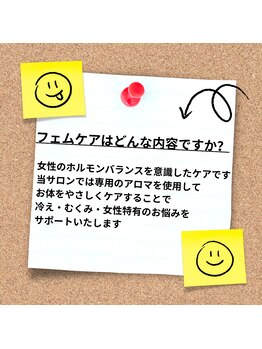 フェムケアはどんな内容ですか?
女性のホルモンバランスを意識したケアです
当サロンでは専用のアロマを使用して
お体をやさしくケアすることで
冷え・むくみ・女性特有のお悩みを
サポートいたします